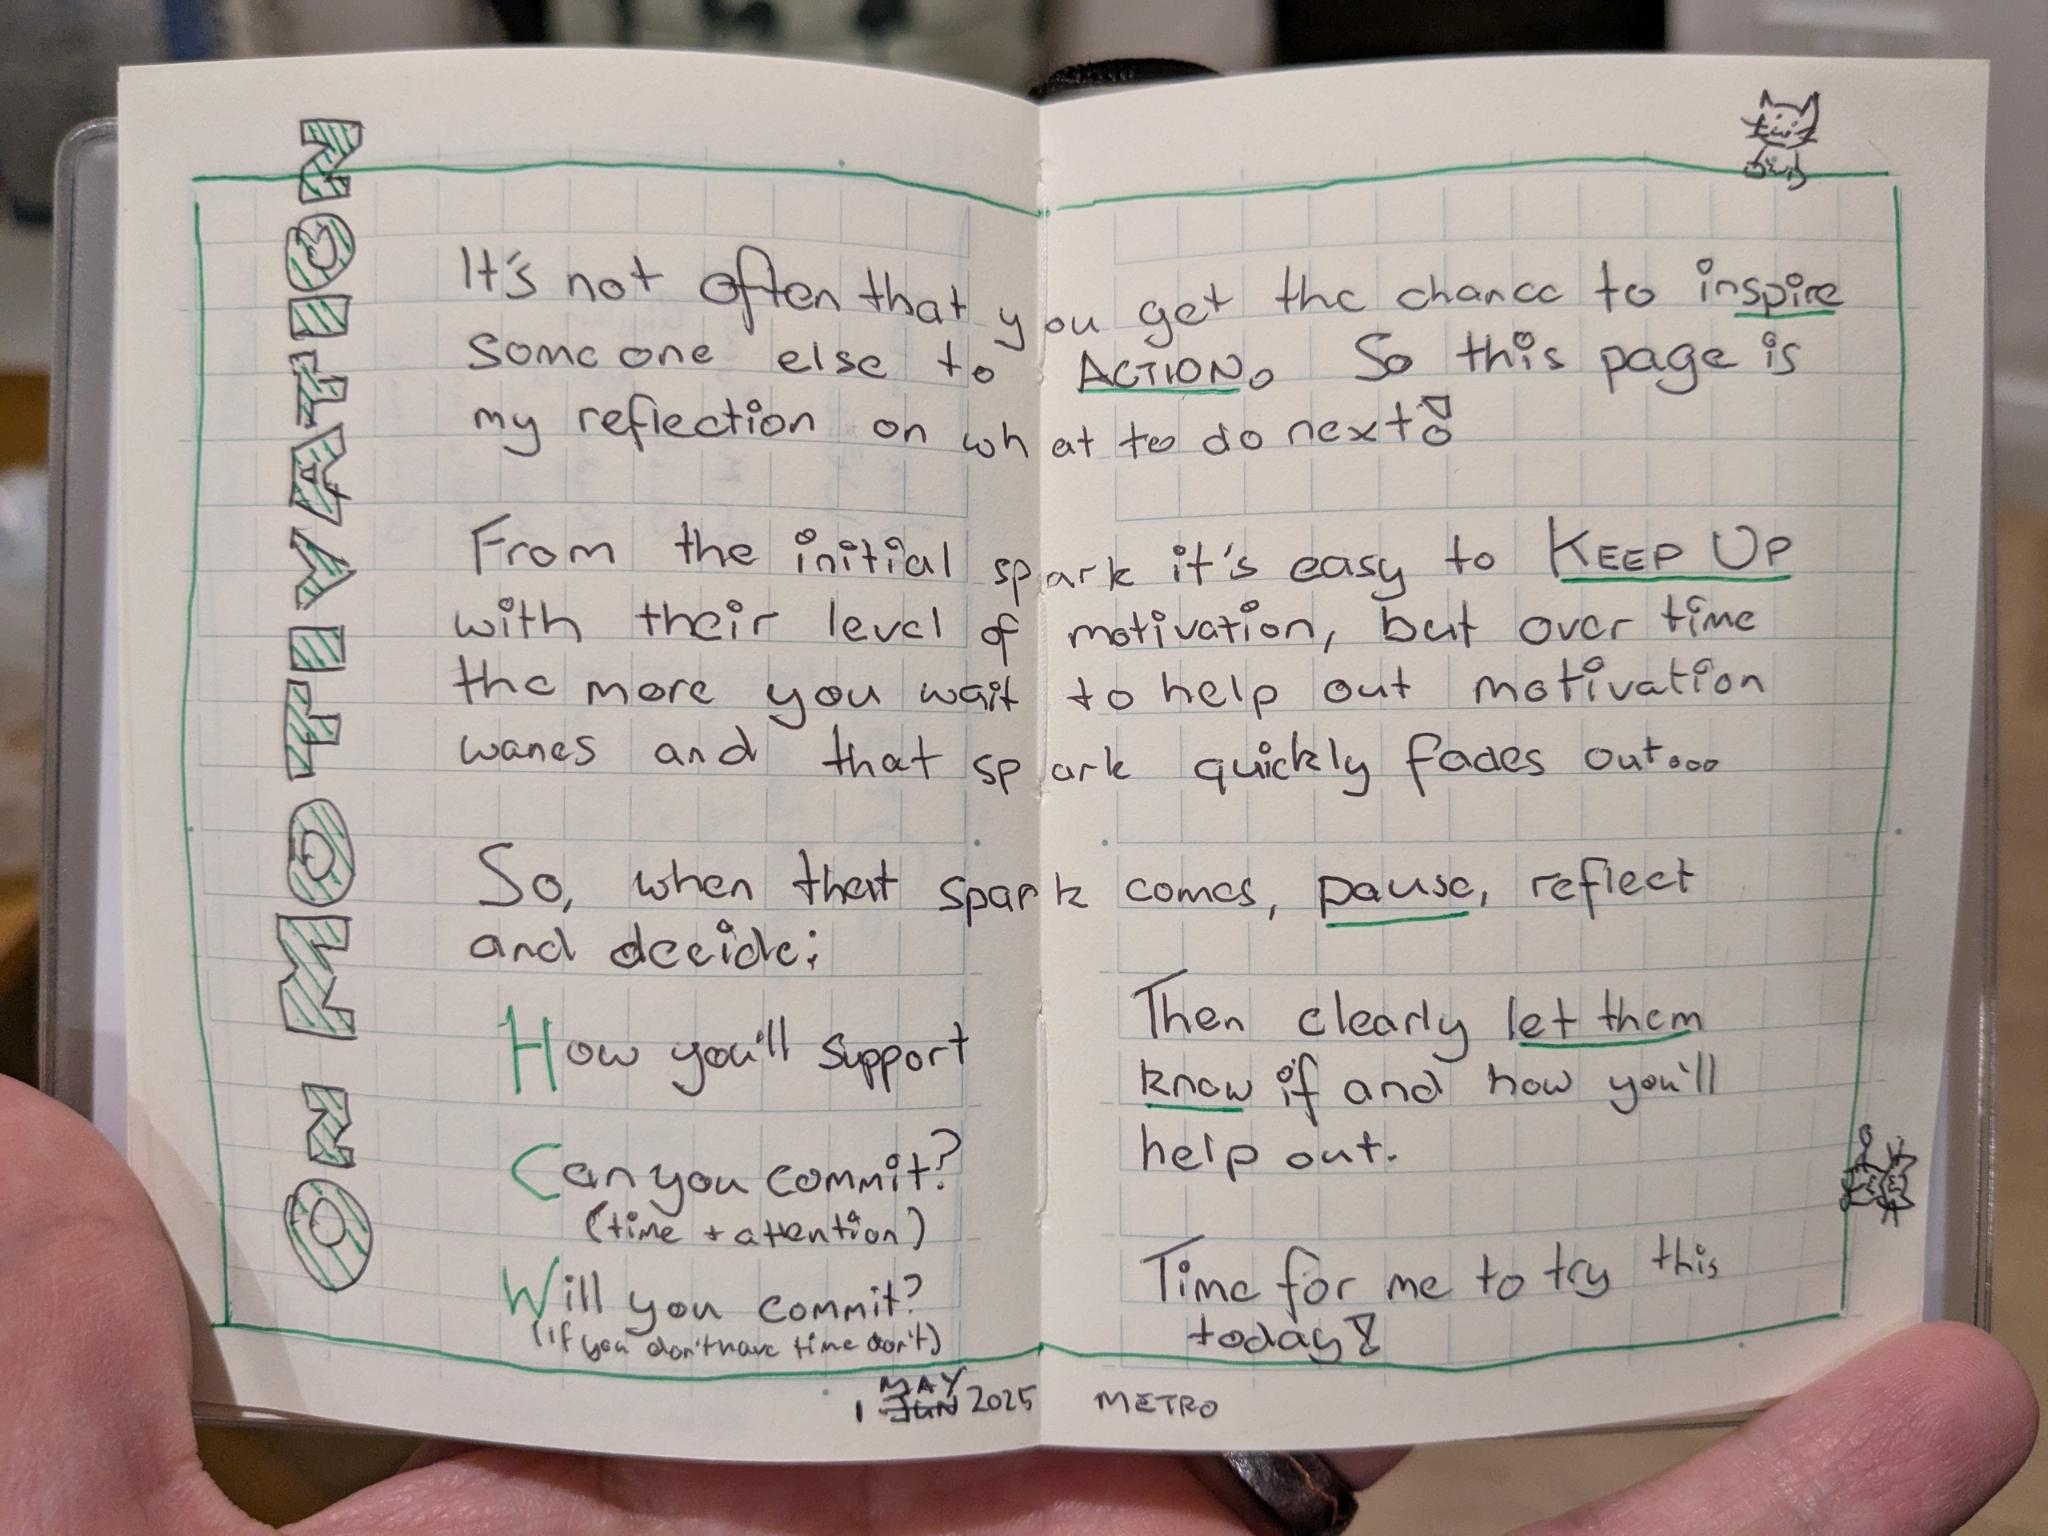 ON MOTIVATION
It's not often that you get the chance to inspire
someone else to ACTION. So this page is
my reflection on what to do next!
From the initial spark it's easy to KEEP UP
with their level of motivation, but over time
the more you wait to help out motivation
wanes and that spark quickly fades out...
So, when that spark comes, pause, reflect
and decide:
How you'll support
Can you commit?
(time + attention)
Will you commit?
(if you don't have time don't)
Then clearly let them
know if and how you'll
help out.
Time for me to try this
today!
1 MAY JUN 2025 METRO